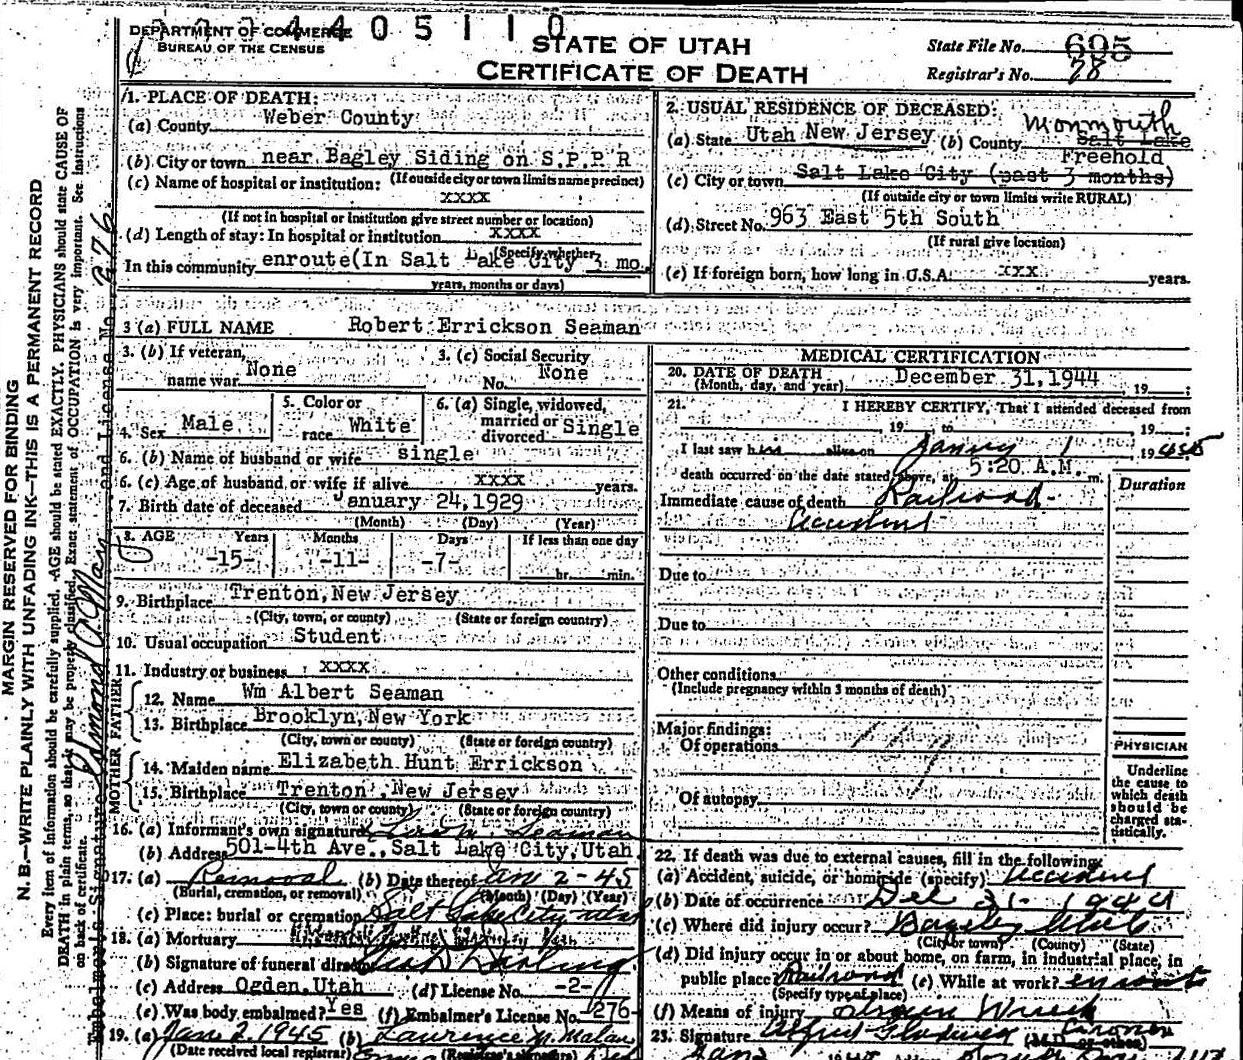 4405110
DEPARTMENT OF COMMERCE
BUREAU OF THE CENSUS
STATE OF UTAH
CERTIFICATE OF DEATH
State File No. 695
Registrar's No. 78
MARGIN RESERVED FOR BINDING
N. B.—WRITE PLAINLY WITH UNFADING INK—THIS IS A PERMANENT RECORD
Every item of information should be carefully supplied. AGE should be stated EXACTLY. PHYSICIANS should state CAUSE OF
DEATH in plain terms, so that it may be properly classified. Exact statement of OCCUPATION is very important. See instructions
on back of certificate.
Embalmers Signature and License No. 276
1. PLACE OF DEATH:
(a) County Weber County
(b) City or town near Bagley Siding on S.P.P R
(If outside city or town limits name precinct)
(c) Name of hospital or institution:
xxxx
(If not in hospital or institution give street number or location)
(d) Length of stay: In hospital or institution xxxx
(Specify whether
In this community enroute (In Salt Lake City 3 mo.
years, months or days)
2. USUAL RESIDENCE OF DECEASED:
(a) State Utah New Jersey (b) County Monmouth Salt Lake
Freehold
(c) City or town Salt Lake City (past 3 months)
(If outside city or town limits write RURAL)
(d) Street No. 963 East 5th South
(If rural give location)
(e) If foreign born, how long in U.S.A. xxx years.
3 (a) FULL NAME Robert Errickson Seaman
3. (b) If veteran,
name war None
3. (c) Social Security
No. None
4. Sex Male
5. Color or
race White
6. (a) Single, widowed,
married or
divorced Single
6. (b) Name of husband or wife single
6. (c) Age of husband or wife if alive xxxx years.
7. Birth date of deceased January 24, 1929
(Month) (Day) (Year)
8. AGE Years Months Days If less than one day
-15- -11- -7- hr. min.
9. Birthplace Trenton, New Jersey
(City, town, or county) (State or foreign country)
10. Usual occupation Student
11. Industry or business xxxx
FATHER
12. Name Wm Albert Seaman
13. Birthplace Brooklyn, New York
(City, town or county) (State or foreign country)
MOTHER
14. Maiden name Elizabeth Hunt Errickson
15. Birthplace Trenton, New Jersey
(City, town or county) (State or foreign country)
16. (a) Informant's own signature Seaman
(b) Address 501-4th Ave., Salt Lake City, Utah
17. (a) Removal (b) Date thereof Jan 2-45
(Burial, cremation, or removal) (Month) (Day) (Year)
(c) Place: burial or cremation Salt Lake City Utah
18. (a) Mortuary
(b) Signature of funeral director Darling
(c) Address Ogden, Utah (d) License No. -2-
(e) Was body embalmed? Yes (f) Embalmer's License No. 276
19. (a) Jan 2 1945 (b) Laurence N. Malan
(Date received local registrar) (Registrar's signature)
MEDICAL CERTIFICATION
20. DATE OF DEATH
(Month, day, and year) December 31, 1944 19 ;
21. I HEREBY CERTIFY, That I attended deceased from
19 to 19 ;
I last saw him alive on January 1 1945
death occurred on the date stated above, at 5:20 A.M. m.
Duration
Immediate cause of death Railroad
accident
Due to
Due to
Other conditions
(Include pregnancy within 3 months of death)
Major findings:
Of operations
Of autopsy
PHYSICIAN
Underline
the cause to
which death
should be
charged sta-
tistically.
22. If death was due to external causes, fill in the following:
(a) Accident, suicide, or homicide (specify) Accident
(b) Date of occurrence Dec 31 - 1944
(c) Where did injury occur?
(City or town) (County) (State)
(d) Did injury occur in or about home, on farm, in industrial place, in
public place Railroad (e) While at work?
(Specify type of place)
(f) Means of injury Wreck
23. Signature Coroner
(M.D. or other)